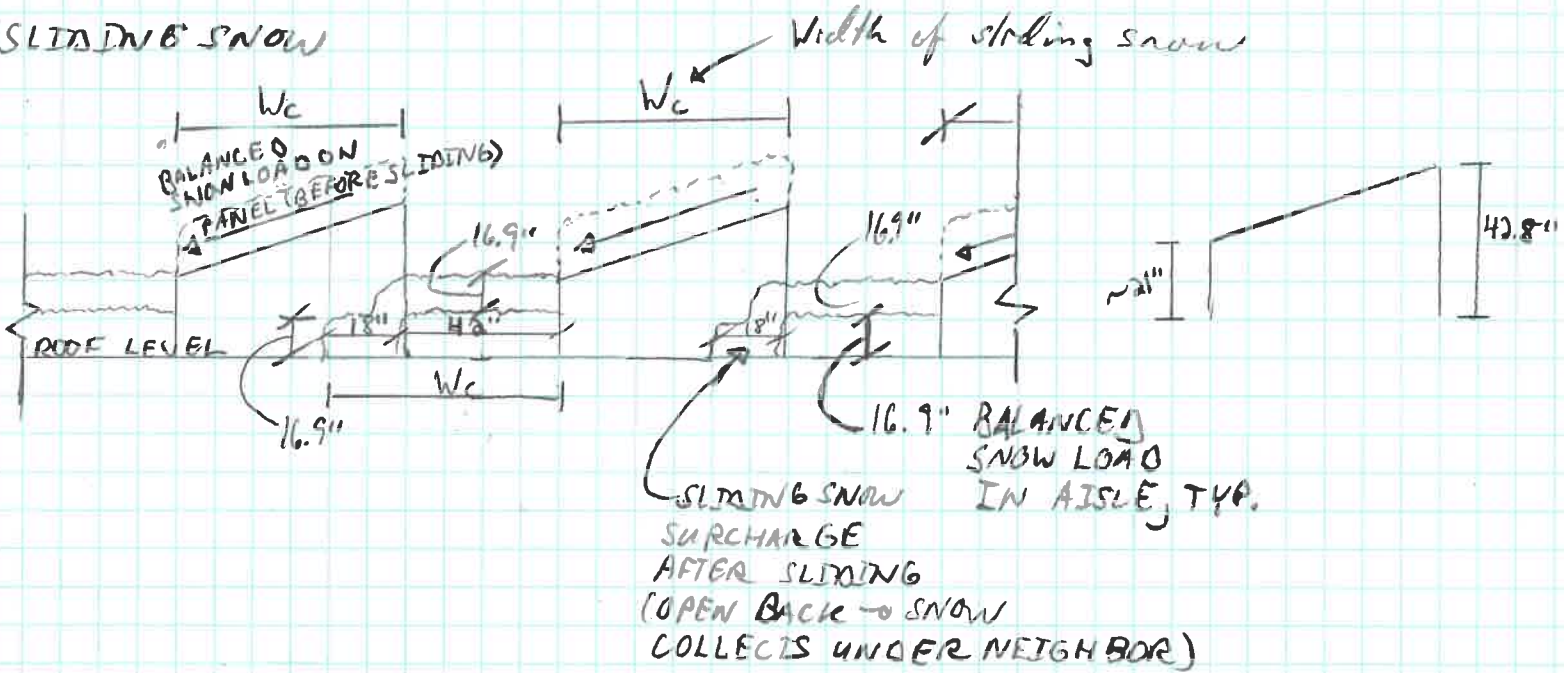 SLIDING SNOW
Width of sliding snow
Wc
Wc
BALANCED
SNOW LOAD ON
PANEL (BEFORE SLIDING)
16.9"
16.9"
42.8"
~21"
18"
42"
8"
ROOF LEVEL
Wc
16.9"
16.9" BALANCED
SNOW LOAD
IN AISLE, TYP.
SLIDING SNOW
SURCHARGE
AFTER SLIDING
(OPEN BACK → SNOW
COLLECTS UNDER NEIGHBOR)